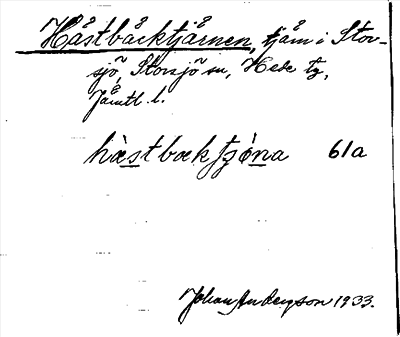 Hästbäcktjärnen, tjärn i Stor-
sjö, Storsjö sn, Hede tg,
Jämtl. l.
hàstbæktjǿna 61a
Johan Anderson 1933.